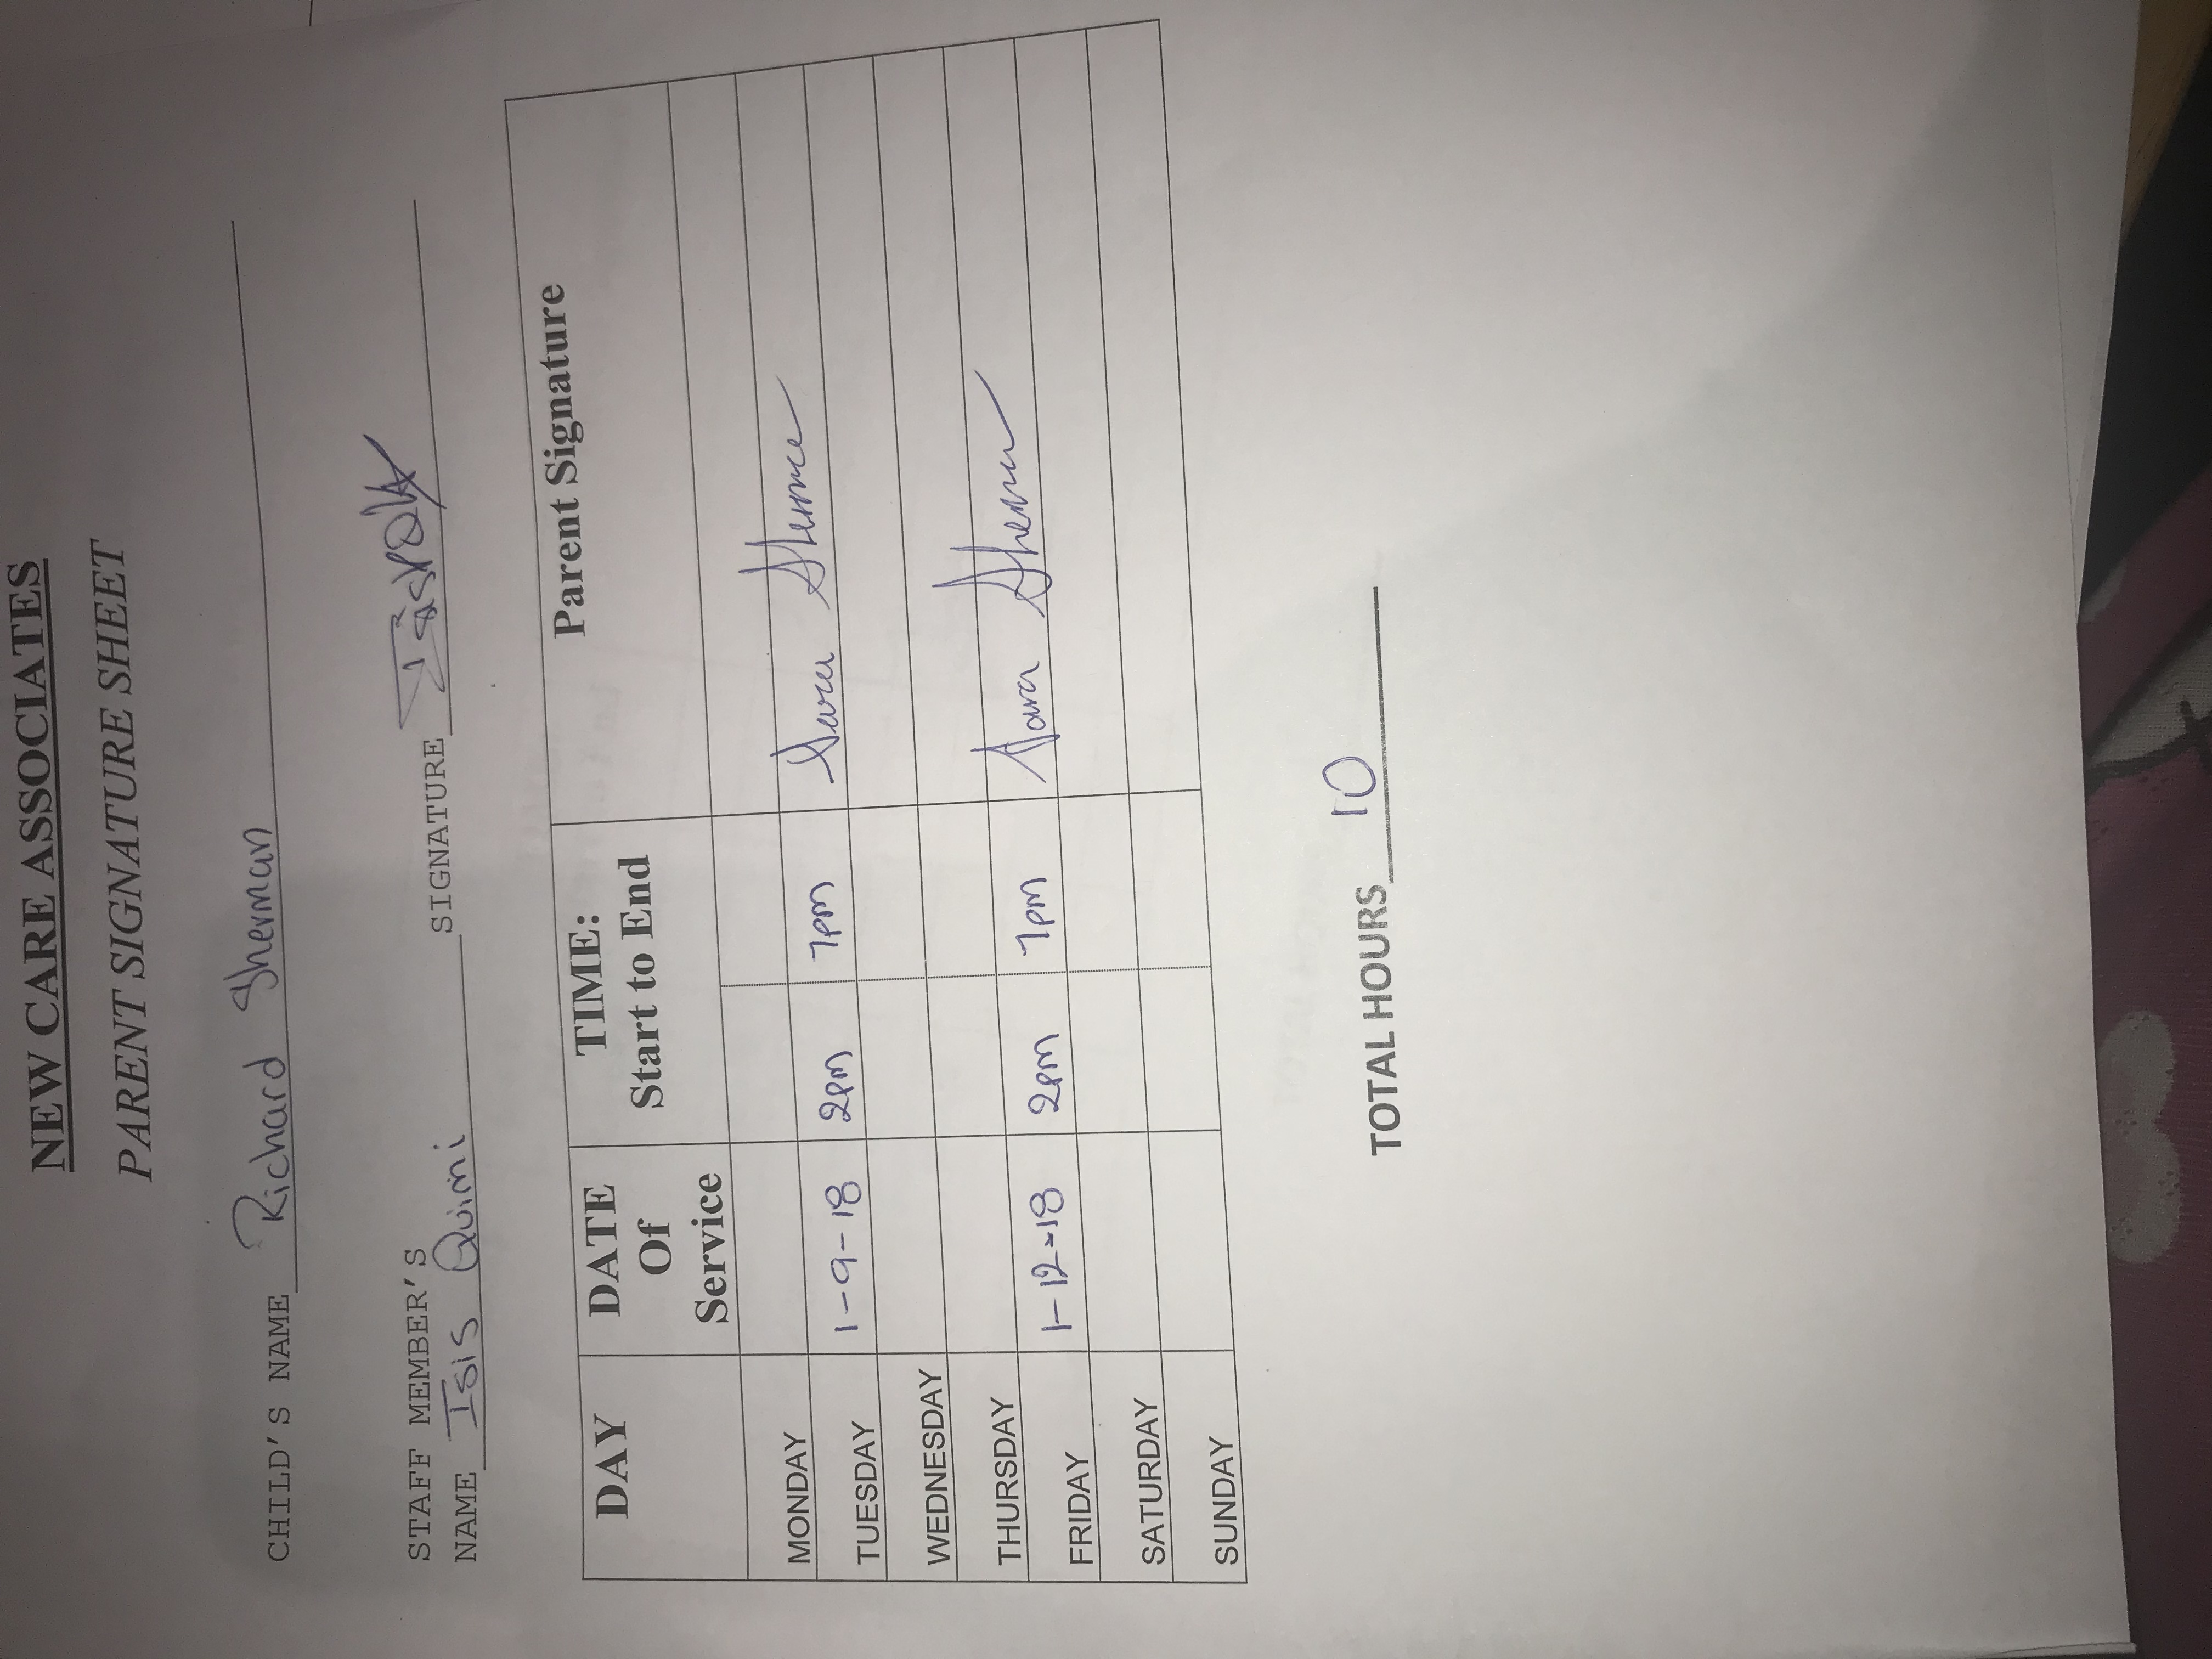 NEW CARE ASSOCIATES
PARENT SIGNATURE SHEET
CHILD'S NAME Richard Sherman
STAFF MEMBER'S
NAME Isis Quimi SIGNATURE
DAY DATE Of Service TIME: Start to End Parent Signature
MONDAY
TUESDAY 1-9-18 2pm 7pm Sara
WEDNESDAY
THURSDAY
FRIDAY 1-12-18 2pm 7pm Sara
SATURDAY
SUNDAY
TOTAL HOURS 10